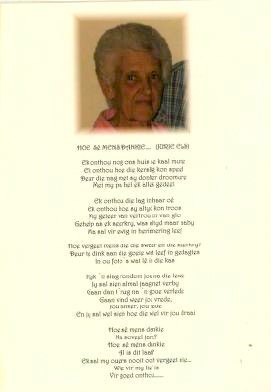 HOE SÊ MENS DANKIE... (JURIE ELS)
Ek onthou nog ons huis se kaal mure
Ek onthou hoe die kerslig kon speel
Deur die nag met sy donker droomure
Met my pa het ek alles gedeel
Ek onthou die lag in haar oë
Ek onthou hoe sy altyd kon troos
Sy geleer van vertrou en van glo
Gehelp as ek seerkry, was altyd maar naby
Ma sal vir ewig in herinnering leef
Hoe vergeet mens die swaar en die seerkry?
Deur te dink aan die goeie wat leef in gedagtes
In ou foto's wat lê in die kas
Kyk 'n slag rondom jou na die lewe
Jy sal sien almal jaag net verby
Gaan dan terug na 'n goue verlede
Gaan vind weer jou vrede,
jou anker, jou eie
En jy sal weet sien hoe die wêl vir jou draai
Hoe sê mens dankie
Na soveel jare?
Hoe sê mens dankie
Al is dit laat
Ek sal my ouers nooit ooit vergeet nie...
Wie vir my lief is
Vir goed onthou......